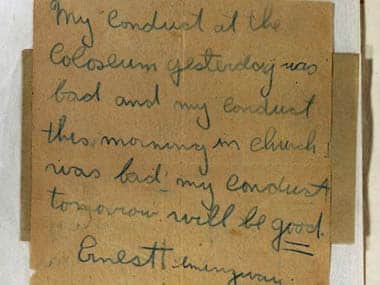 My conduct at the
Coloseum yesterday was
bad and my conduct
this morning in church
was bad my conduct
tomorrow will be good.
Ernest Hemingway.